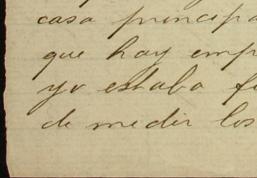 casa principa
que hay emp
yo estaba f
de medir los